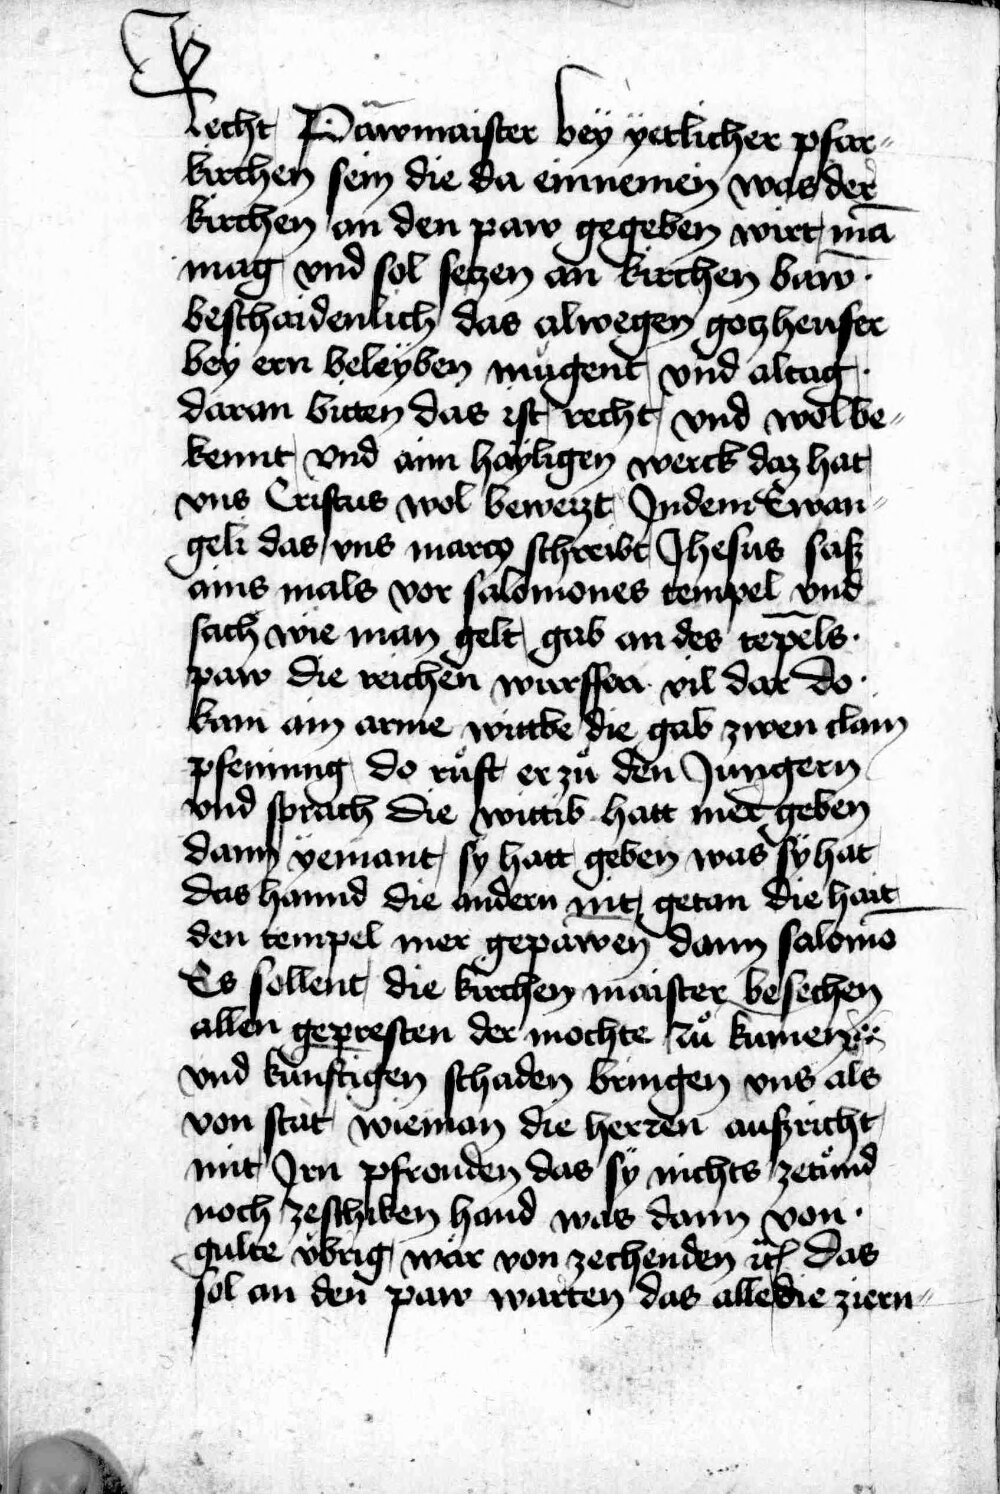 Recht Pawmaister bey yetlicher pfar-
kirchen sein die da einnemen was der
kirchen an den paw gegeben wirt mā
mag vnd sol setzen an kirchen baw·
beschaidenlich das alwegen gotzheuser
bey ern beleyben mügent vnd altag·
daran bitten das ist recht vnd wol be-
kennt vnd ain hayligen werck daz hat
vns Cristus wol beweyzt Indem Ewan-
geli das vns marcy schreibt Jhesus saß
ains mals vor salomones tempel vnd
sach wie man gelt gab an des tēpels·
paw die reichen wurffen vil dar do·
kam ain arme wittbe die gab zwen clain
pfening do růft er zů den Jungern
vnd sprach die wittib hatt mer geben
dann yemant sy hatt geben was sy hat
das hannd die andern nit getan die hait
den tempel mer gepawen dann salomō
Es sollent die kirchen maister besechen
allen gepresten der mochte zů kumen
vnd künftigen schaden bringen vns als
von stat wie man die herren außricht
mit Irn pfronden das sy nichts zetůnd
noch zeschiken hand was dann von·
gulte vbrig wär von zechenden ꝛc̃ das
sol an den paw warten das alle die ziern-